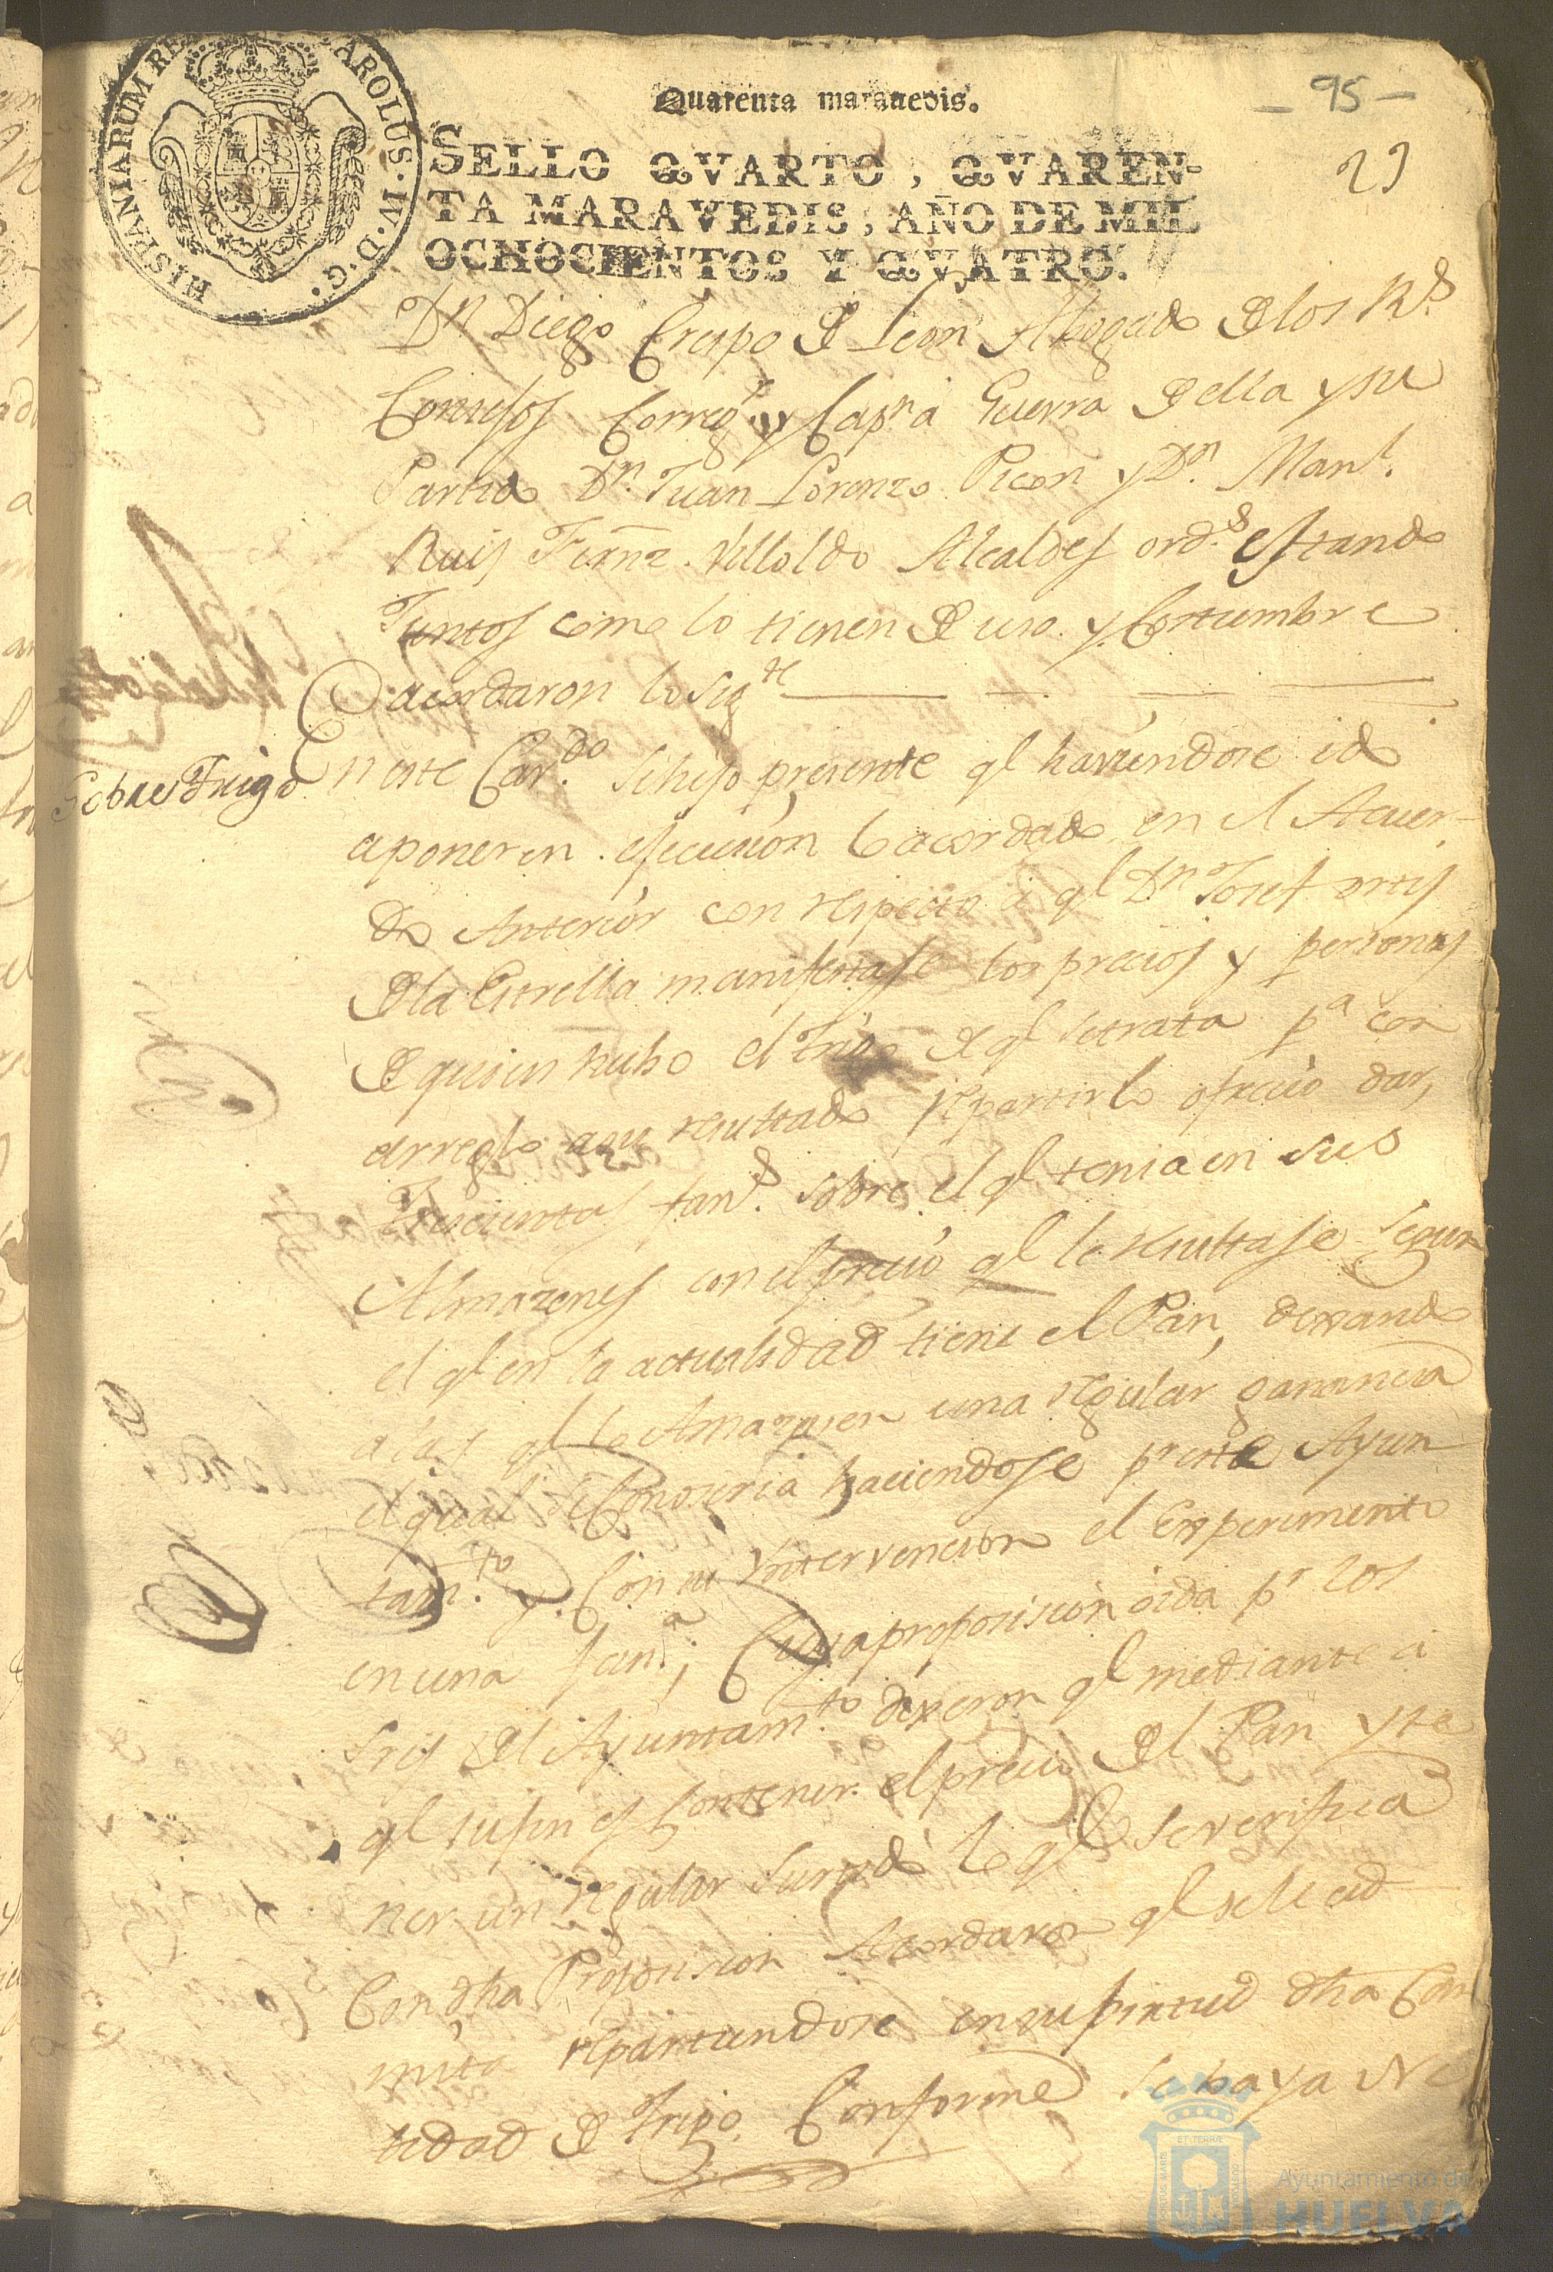 HISPANIARUM RE
AROLUS · IV · D · G ·
Quarenta maravedis.
– 95 –
SELLO QVARTO, QVAREN-
TA MARAVEDIS, AÑO DE MIL
OCHOCIENTOS Y QVATRO.
Dn Diego Crespo de Leon Abogado de los Rs
Consejos Corregr y Capn a Guerra de ella y su
Partido Dn. Juan Lorenzo Picon y Dn. Manl.
Ruis Fernz. Villoldo Alcaldes ords estando
Juntos como lo tienen de uso y Costumbre
acordaron lo sigte
Sobre Trigo
En este Cavdo se hiso presente ql haviendose ido
a poner en execusion lo acordado en el Acuer-
do Anterior con respecto a ql Dn Josef ortis
de la Estrella manifestase los precios y personas
de quienes hubo el trigo de ql se trata pa con
arreglo a su resultado repartirlo ofrecio dar,
Trescientas fans. sobre el ql tenia en sus
Almazenes con el precio ql le resultase segun
el ql en la actualidad tiene el Pan, dexando
a las ql lo Amazasen una regular ganancia
el qual se Conoseria haciendose pr este Ayun
tamto. y Con su Yntervencion el Experimento
en una fana; Cuya proposision oida pr los
Sres del Ayuntamto dixeron ql mediante a
ql su fin es Contener el precio del Pan y te
ner un regular surtido lo ql se verifica
Con dha Proposision Acordaron ql se le ad
mita repartiendose en su virtud dha Can
tidad de Trigo Conforme se haya Ne
Ayuntamiento de
HUELVA